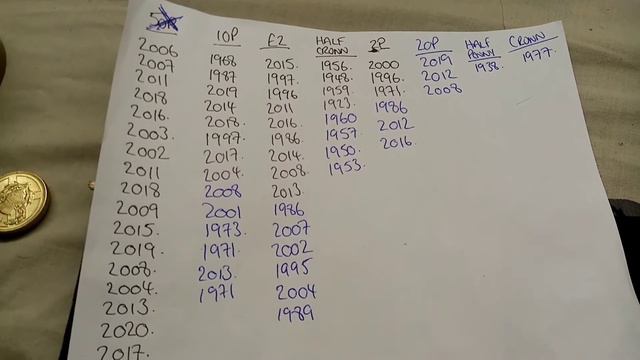 2006
2007
2011
2018
2016.
2003.
2002
2011
2018
2009
2015.
2019.
2008.
2004.
2013.
2020.
2017.
10P
1968
1987
2019
2014
2018.
1997
2017.
2004
2008
2001
1973.
1971.
2013.
1971
£2
2015.
1997.
1996
2011
2016.
1986
2014.
2008.
2013
1986
2007
2002
1995
2004
1989
HALF
CROWN
1956.
1948.
1959
1923.
1960
1957
1950.
1953.
2P
2000
1996.
1971.
1986
2012
2016.
20P
2019
2012
2008
HALF
PENNY
1938.
CROWN
1977.